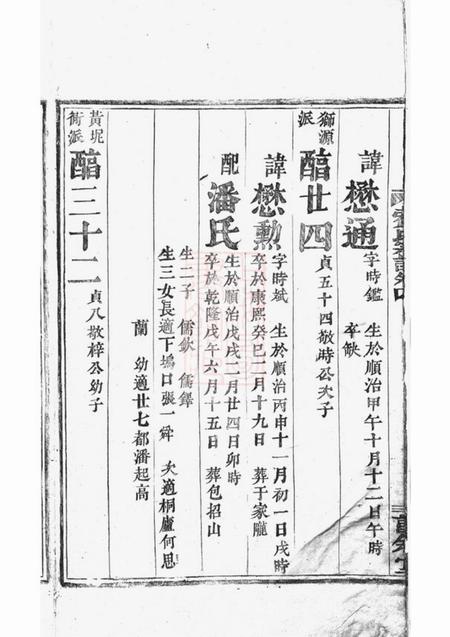 諱懋通 字時鑑 生於順治甲午十月十二日午時
卒缺
獅源派 醕廿四 貞五十四敬時公次子
諱懋勲 字時斌 生於順治丙申十一月初一日戌時
卒於康熙癸巳二月十九日 葬于家隴
配潘氏 生於順治戊戌二月廿四日卯時
卒於乾隆戊午六月十五日 葬包招山
生二子 儒欽 儒鐸
生三女長適下塢口張一舜 次適桐廬何思
蘭 幼適廿七都潘起高
黃坭衕派 醕三十二 貞八敬梓公幼子